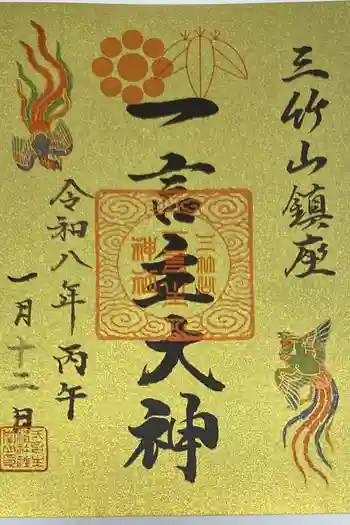 三竹山鎮座
一言主大神
令和八年丙午
一月十二日
三竹山
一言主
神社